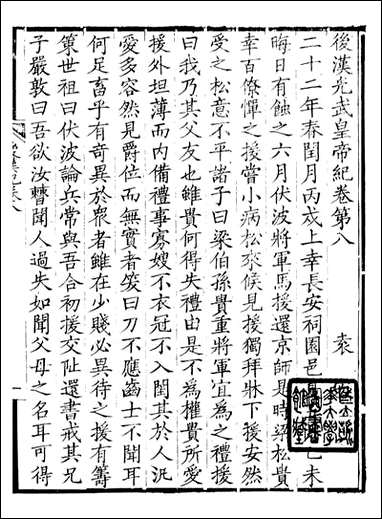 後漢光武皇帝紀卷第八 袁
二十二年春閏月丙戌上幸長安祠園邑 已未
晦日有蝕之六月伏波將軍馬援還京師是時梁松貴
幸百僚憚之援嘗小病松來候見援獨拜牀下援安然
受之松意不平諸子曰梁伯孫貴重將軍宜為之禮援
曰我乃其父友也雖貴何得失禮由是不為權貴所愛
援外坦薄而内備禮事寡嫂不衣冠不入閨其於人汎
愛多容然見爵位而無實者笑曰刀不應齒士不聞耳
何足畜乎有奇異於衆者雖在少賤必異待之援有籌
策世祖曰伏波論兵常與吾合初援交阯還書戒其兄
子嚴敦曰吾欲汝曹聞人過失如聞父母之名耳可得